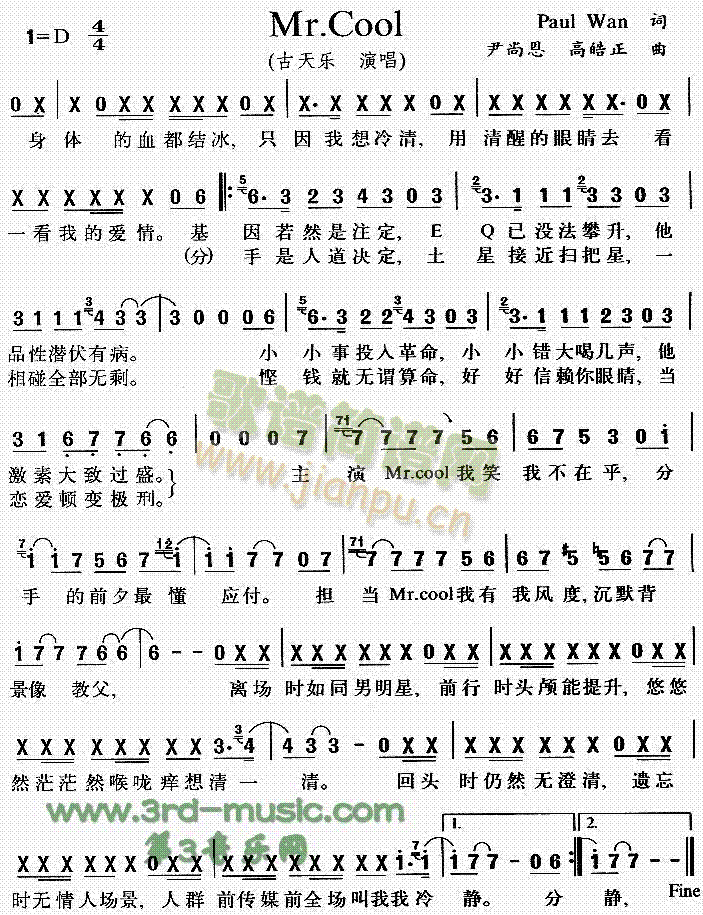 Mr.Cool
1=D 4/4
Paul Wan 词
(古天乐 演唱)
尹尚恩 高皓正 曲
0 X | X 0 X X X X X 0 X | X· X X X X X 0 X | X X X X X X X· 0 X |
身体 的血都结冰, 只因我想冷清, 用清醒的眼睛去 看
X X X X X X X 0 6 ‖: 6· 3 2 3 4 3 0 3 | 3· 1 1 1 3 3 0 3 |
一看我的爱情。 基 因若然是注定, E Q已没法攀升, 他
(分) 手是人道决定, 土 星接近扫把星, 一
3 1 1 1 4 3 3 | 3 0 0 0 6 | 6· 3 2 2 4 3 0 3 | 3· 1 1 1 2 3 0 3 |
品性潜伏有病。 小 小事投入革命, 小 小错大喝几声, 他
相碰全部无剩。 悭 钱就无谓算命, 好 好信赖你眼睛, 当
歌谱简谱网
www.jianpu.cn
3 1 6 7 7 6 6 | 0 0 0 7 | 7 7 7 7 5 6 | 6 7 5 3 0 i |
激素大致过盛。 主 演Mr.cool我笑 我不在乎, 分
恋爱顿变极刑。
i i 7 5 6 7 i | i i 7 7 0 7 | 7 7 7 7 5 6 | 6 7 5 5 6 7 7 |
手 的前夕最懂 应付。 担 当Mr.cool我有 我风度, 沉默背
i 7 7 7 6 6 | 6 - - 0 X X | X X X X X X X 0 X X | X X X X X X X 0 X X |
景像 教父, 离场 时如同男明星, 前行 时头颅能提升, 悠悠
X X X X X X X X 3· 4 | 4 3 3 - 0 X X | X X X X X X X 0 X X |
然茫茫然喉咙痒想清一 清。 回头 时仍然无澄清, 遗忘
www.3rd-music.com
第3音乐网
1. 2.
X X X X X X X 0 X X | X X X X X X X X i· i | i 7 7 - 0 6 :‖ i 7 7 - - ‖
时无情人场景, 人群 前传媒前全场叫我我冷 静。 分 静,
Fine